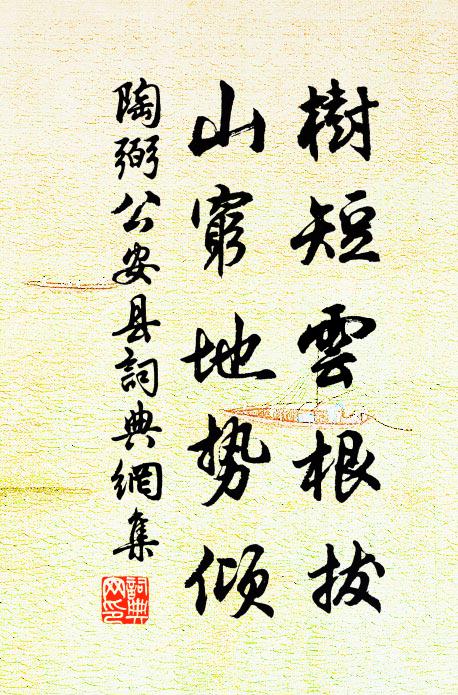 樹短雲根拔
山窮地势傾
陶弼公安县詞典網集
詞典网印